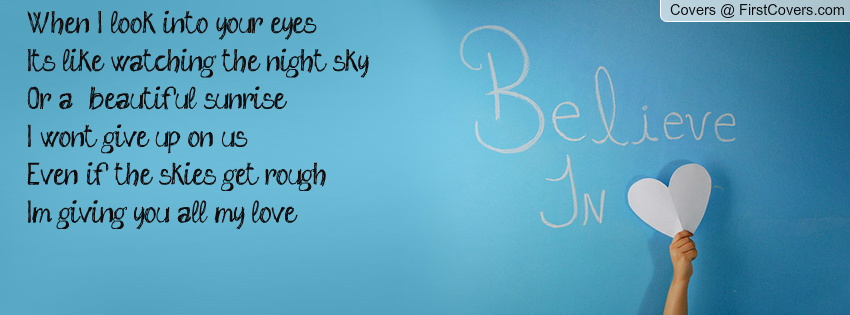 When I look into your eyes
Its like watching the night sky
Or a beautiful sunrise
I wont give up on us
Even if the skies get rough
Im giving you all my love
Believe
In
Covers @ FirstCovers.com